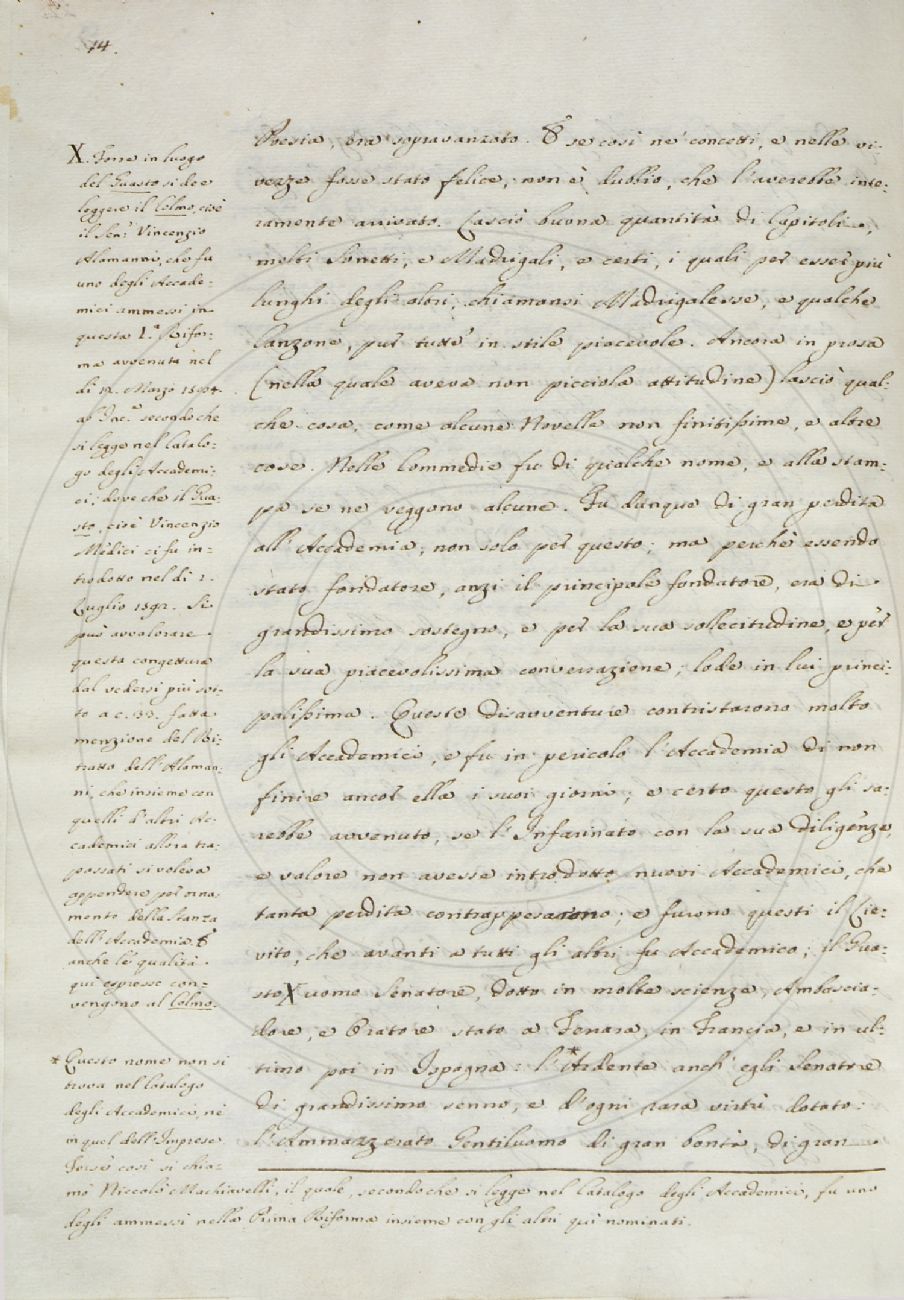 14.
Poesia, ora sopravanzato. E se così ne' concetti, e nelle vi-
vezze fosse stato felice, non è dubbio, che l'averebbe inte-
ramente arrivato. Lasciò buona quantità di Capitoli,
molti Sonetti, e Madrigali, e certi, i quali per esser più
lunghi degli altri, chiamansi Madrigalesse, e qualche
Canzone, pur tutte in stile piacevole. Ancora in prosa
(nella quale aveva non picciola attitudine) lasciò qual-
che cosa, come alcune Novelle non finitissime, e altre
cose. Nelle Commedie fu di qualche nome, e alla stam-
pa se ne veggono alcune. Fu dunque di gran perdita
all'Accademia, non solo per questo; ma perchè essendo
stato fondatore, anzi il principale fondatore, era di
grandissimo sostegno, e per la sua sollecitudine, e per
la sua piacevolissima conversazione; lode in lui princi-
palissima. Queste disavventure contristarono molto
gli Accademici, e fu in pericolo l'Accademia di non
finire ancor ella i suoi giorni; e certo questo gli sa-
rebbe avvenuto, se l'Infarinato con la sua diligenze,
e valore non avesse introdotto nuovi Accademici, che
tanta perdita contrappesarono; e furono questi il Lie-
vito, che avanti a tutti gli altri fu Accademico; il Gua-
sto X uomo Senatore, dotto in molte scienze, Ambascia-
dore, e Oratore stato a Ferrara, in Francia, e in ul-
timo poi in Ispagna: l'*Ardente anch'egli Senatore
di grandissimo senno, e d'ogni rara virtù dotato:
l'Ammazzerato Gentiluomo di gran bontà, di gran
X. Forse in luogo
del Guasto si dee
leggere il Colmo, cioè
il Sen.r Vincenzio
Alamanni, che fu
uno degli Accade-
mici ammessi in
questa 1.a Rifor-
ma avvenuta nel
di Marzo
ab Inc.e secondo che
si legge nel Catalo-
go degli Accademi-
ci; dove che il Gua-
sto, cioè Vincenzio
Medici ci fu in-
trodotto nel dì 1.
Luglio 1592. Si
può avvalorare
questa congettura
dal vedersi più sot-
to a c. 33. fatta
menzione del Ri-
tratto dell'Alaman-
ni, che insieme con
quelli d'altri Ac-
cademici allora tra-
passati si voleva
appendere per orna-
mento della Stanza
dell'Accademia. E
anche le qualità
qui espresse con-
vengono al Colmo.
* Questo nome non si
trova nel Catalogo
degli Accademici, nè
in quel dell'Imprese
Forse così si chia-
mò Niccolò Machiavelli, il quale, secondo che si legge nel Catalogo degli Accademici, fu uno
degli ammessi nella Prima Riforma insieme con gli altri quì nominati.